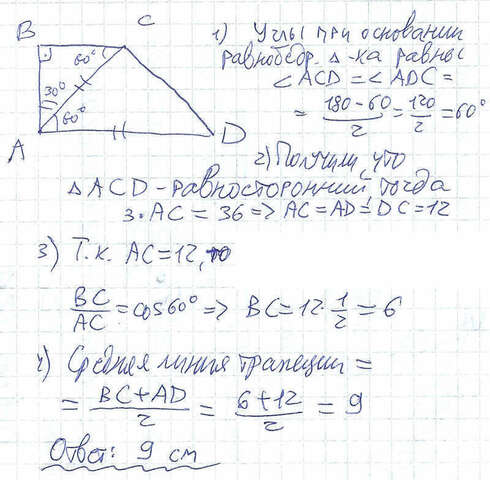 B
C
60°
30°
60°
A
D
1) Углы при основании
равнобедр. Δ-ка равны
∠ACD = ∠ADC =
= (180-60)/2 = 120/2 = 60°
2) Получили, что
ΔACD - равносторонний, тогда
3·AC = 36 => AC = AD = DC = 12
3) Т.к. AC = 12, то
BC/AC = cos60° => BC = 12·1/2 = 6
4) Средняя линия трапеции =
= (BC + AD)/2 = (6 + 12)/2 = 9
Ответ: 9 см